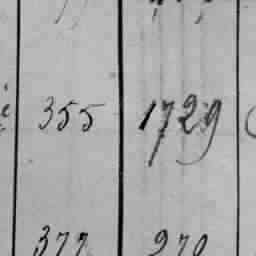 355 1729
377 970